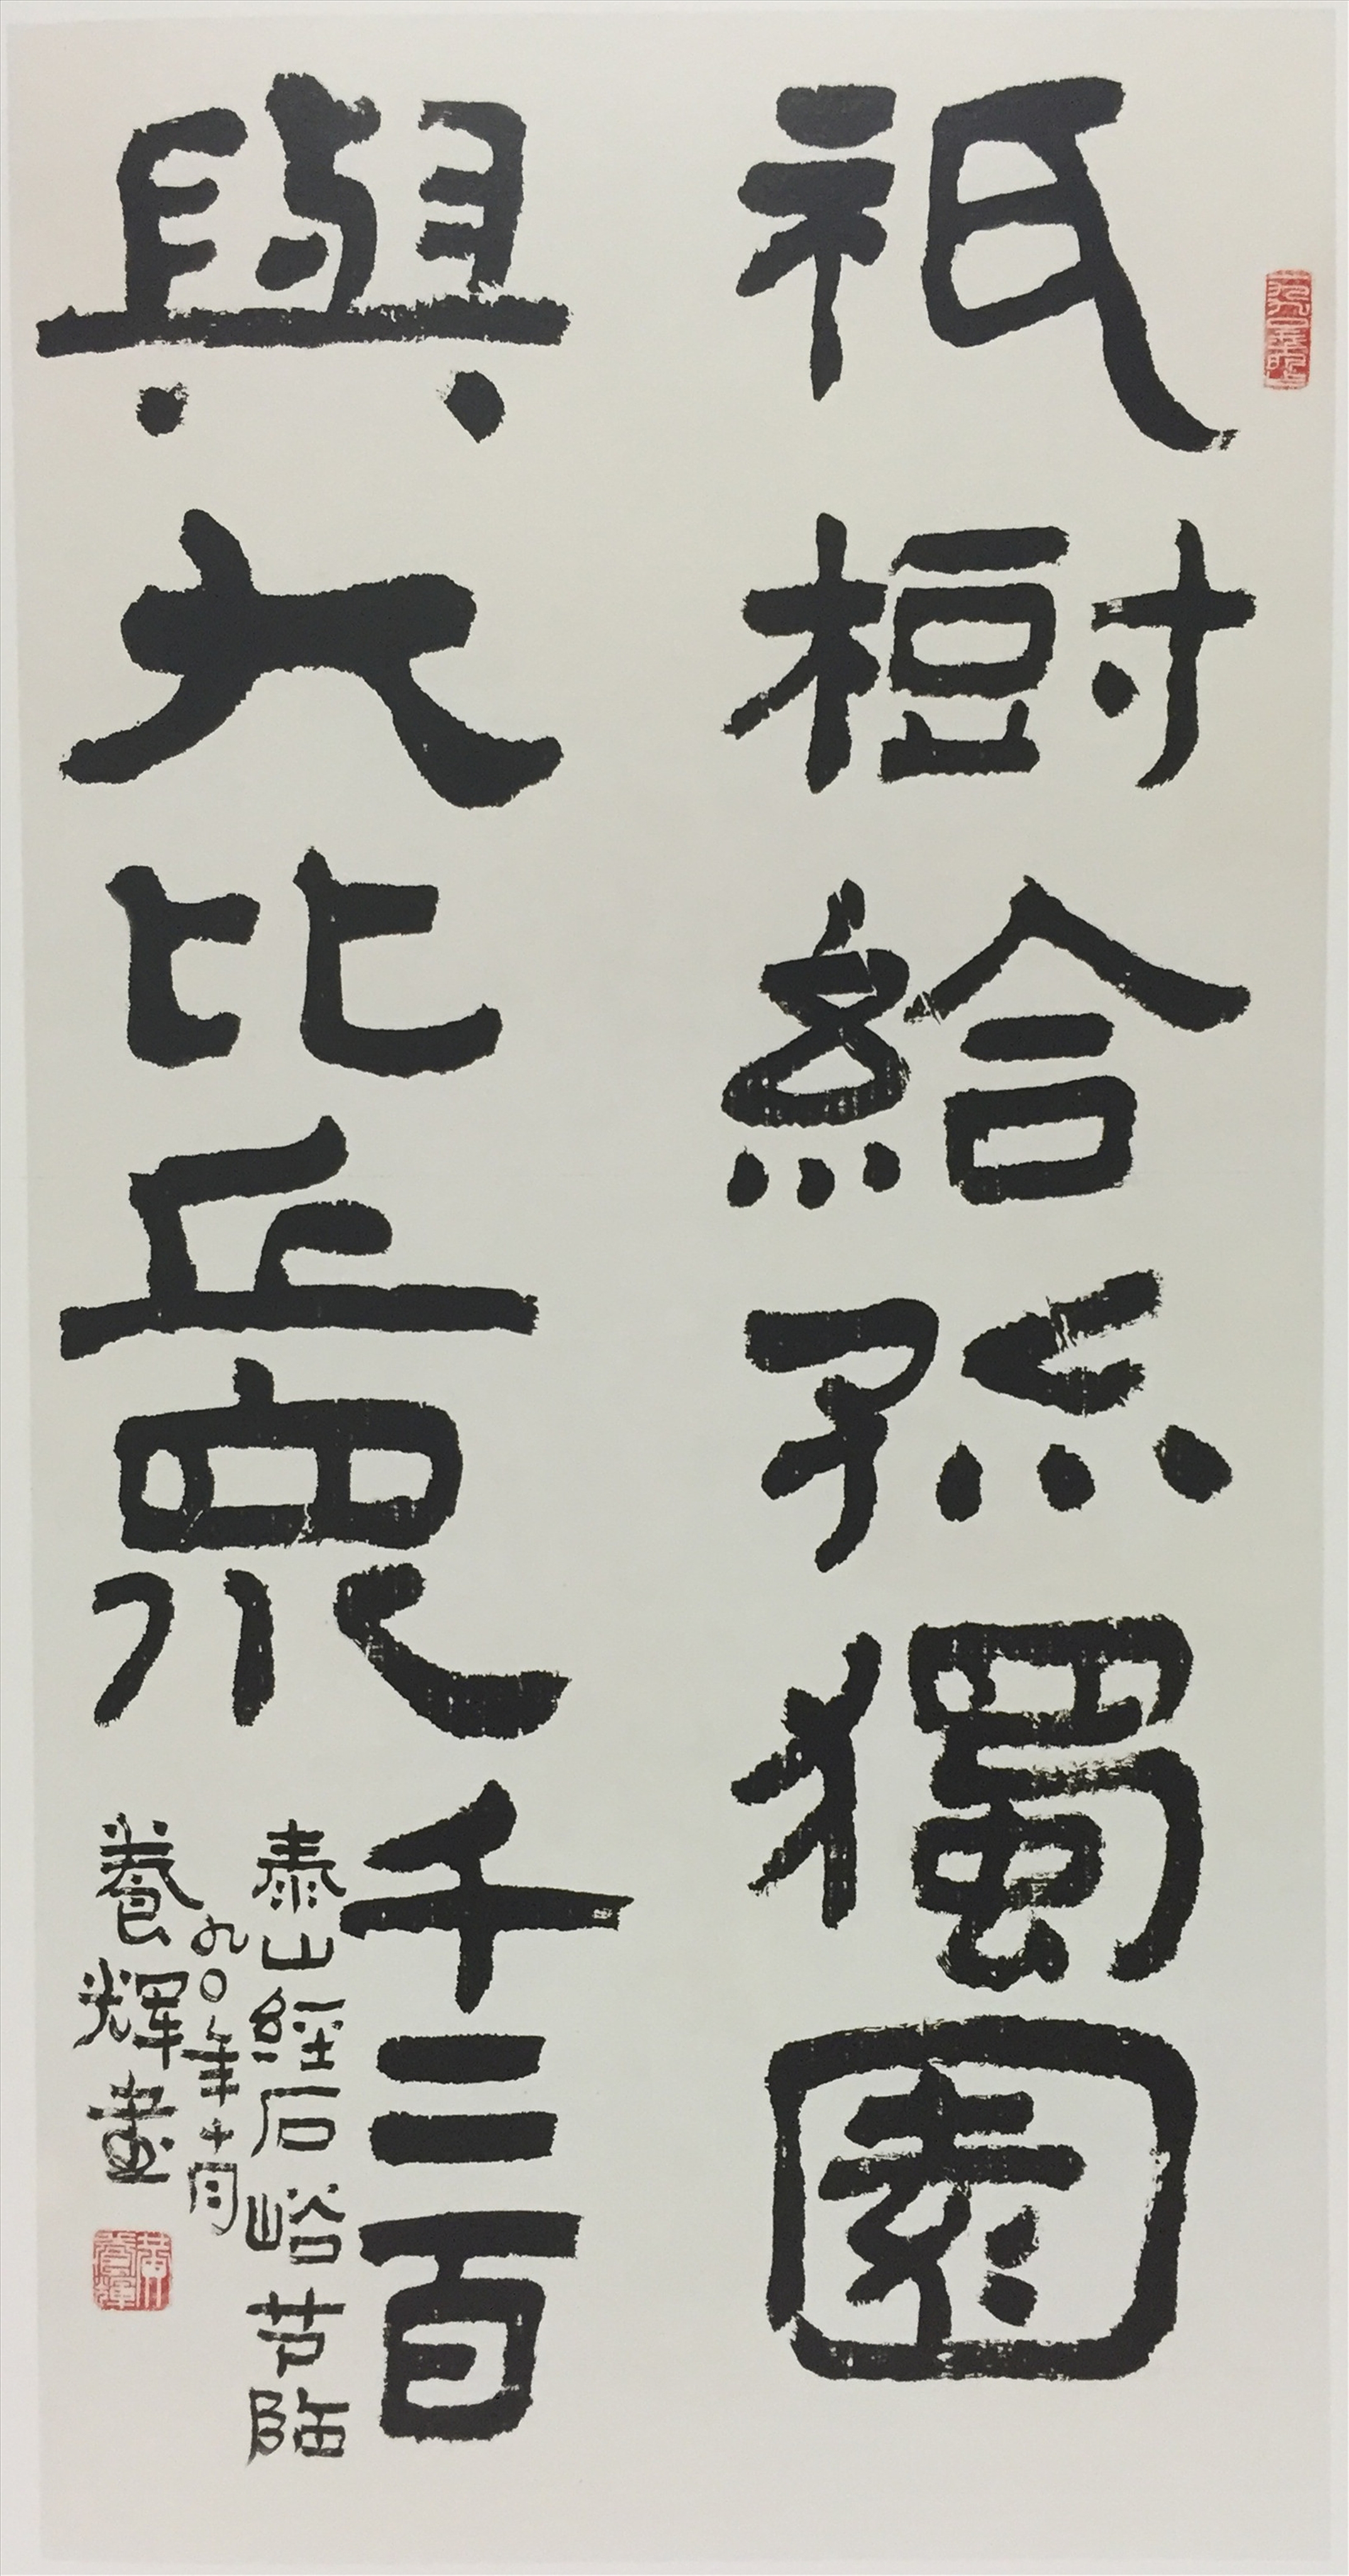 祇樹給孤獨園
與大比丘眾千二百
泰山經石峪节臨
九〇年十月
養輝書
黃養輝